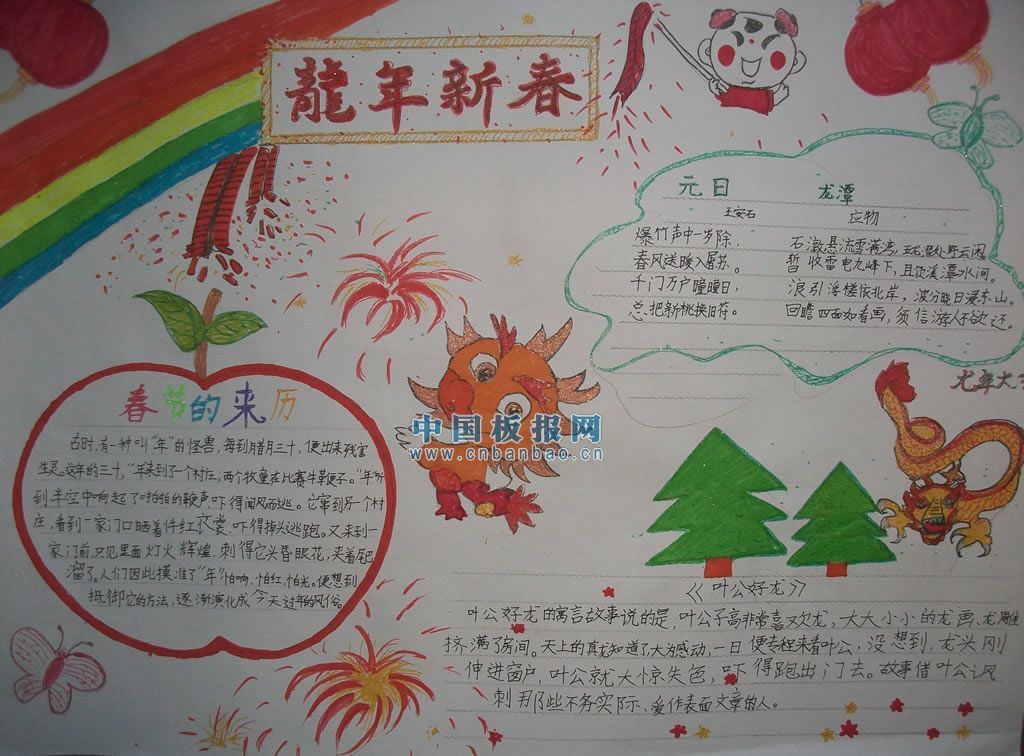 龍年新春
元日
王安石
爆竹声中一岁除，
春风送暖入屠苏。
千门万户曈曈日，
总把新桃换旧符。
龙潭
应物
石激悬流雪满湾，五龙潜处野云闲
暂收雷电龙峰下，且饮溪潭水间。
浪引浮槎依北岸，波分晓日浸东山。
回瞻四面如看画，须信游人不欲还。
春节的来历
古时，有一种叫"年"的怪兽，每到腊月三十，便出来残害
生灵。这年的三十，"年"来到了一个村庄，两个牧童在比赛牛鞭子。"年"听
到半空中响起了啪啪的鞭声，吓得闻风而逃。它窜到另一个村
庄，看到一家门口晒着件红衣裳，吓得掉头逃跑。又来到一
家门前，只见里面灯火辉煌，刺得它头昏眼花，夹着尾巴
溜了。人们因此摸准了"年"怕响，怕红，怕光。便想到
抵御它的方法，逐渐演化成今天过年的风俗。
中国板报网
www.cnbanbao.cn
龙年大
《叶公好龙》
叶公好龙的寓言故事说的是，叶公子高非常喜欢龙，大大小小的龙画、龙雕
挤满了房间。天上的真龙知道了大为感动，一日便专程来看叶公，没想到，龙头刚
伸进窗户，叶公就大惊失色，吓得跑出门去。故事借叶公讽
刺那些不务实际、爱作表面文章的人。